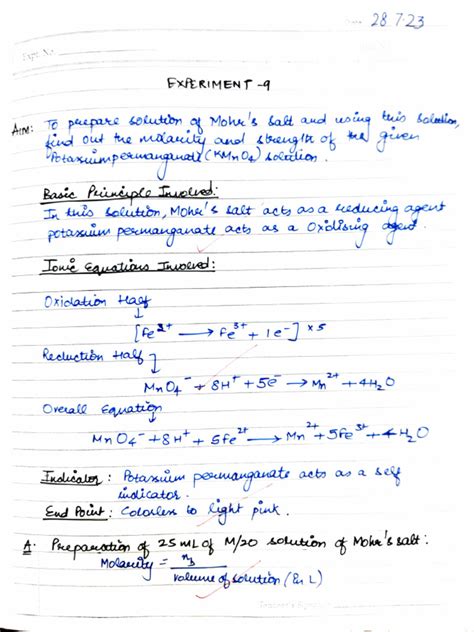 28.7.23
EXPERIMENT - 9
AIM: To prepare solution of Mohr's salt and using this solution,
find out the molarity and strength of the given
Potassium permanganate (KMnO4) solution.
Basic Principle Involved:
In this solution, Mohr's salt acts as a reducing agent
potassium permanganate acts as a Oxidising agent.
Ionic Equations Involved:
Oxidation Half
↓
[Fe²⁺ → Fe³⁺ + 1e⁻] × 5
Reduction Half
↓
MnO4⁻ + 8H⁺ + 5e⁻ → Mn²⁺ + 4H2O
Overall Equation
↓
MnO4⁻ + 8H⁺ + 5Fe²⁺ → Mn²⁺ + 5Fe³⁺ + 4H2O
Indicator: Potassium permanganate acts as a self
indicator.
End Point: Colorless to light pink.
A: Preparation of 25 mL of M/20 solution of Mohr's salt:
Molarity = n_b
volume of solution (in L)
Teacher's Signature